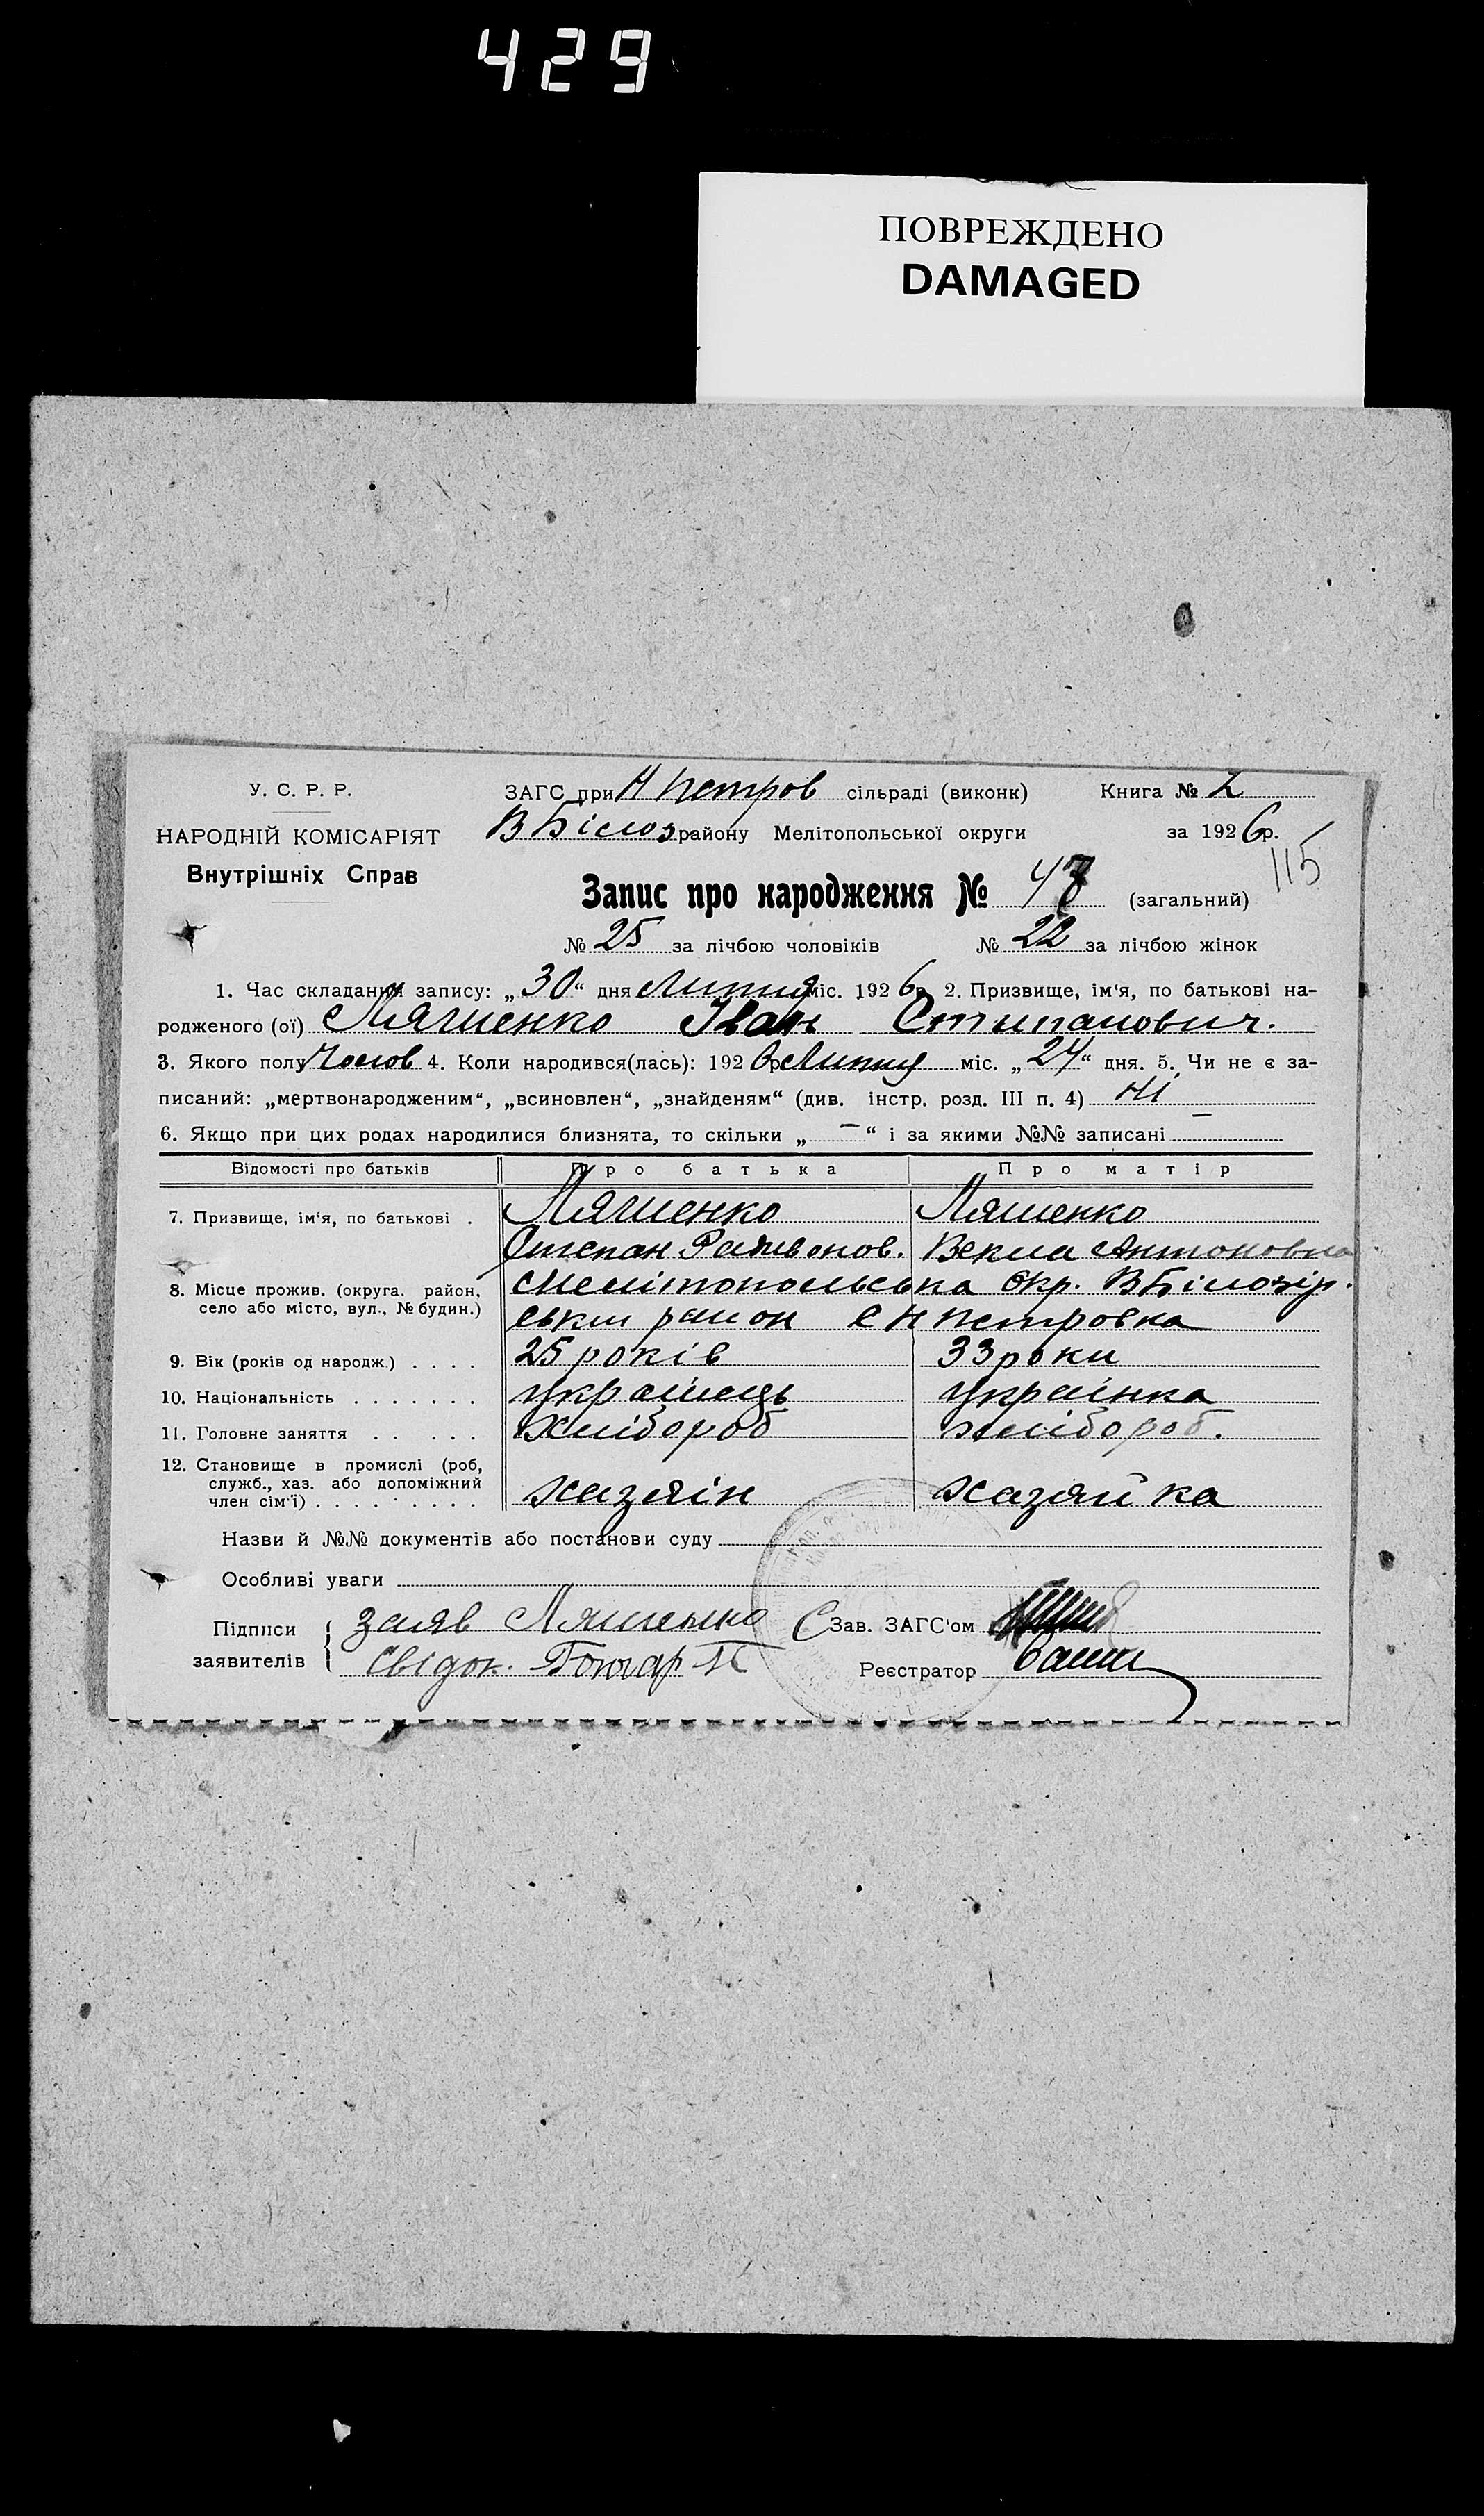 429
ПОВРЕЖДЕНО
DAMAGED
У. С. Р. Р.
НАРОДНІЙ КОМІСАРІЯТ
Внутрішніх Справ
ЗАГС при Н Петров сільраді (виконк) Книга № 2
В Білоз району Мелітопольської округи за 1926 р.
115
Запис про народження № 47 (загальний)
№ 25 за лічбою чоловіків № 22 за лічбою жінок
1. Час складання запису: „30“ дня Липня міс. 1926 р. 2. Призвище, ім‘я, по батькові на-
родженого (ої) Ляшенко Іван Стипанович.
3. Якого полу Чолов 4. Коли народився(лась): 1926 р Липня міс. „24“ дня. 5. Чи не є за-
писаний: „мертвонародженим“, „всиновлен“, „знайденям“ (див. інстр. розд. III п. 4) Ні
6. Якщо при цих родах народилися близнята, то скільки „ — “ і за якими №№ записані —
Відомості про батьків Про батька Про матір
7. Призвище, ім‘я, по батькові . Ляшенко Ляшенко
Степан Ративонов. Векла Антоновна
8. Місце прожив. (округа. район, село або місто, вул., № будин.) Мелітопольська Окр. В Білозір.
ськи район с Н Петровка
9. Вік (років од народж.) . . . . 25 років 33 роки
10. Національність . . . . . . . українець українка
11. Головне заняття . . . . . . Хлібороб хлібороб.
12. Становище в промислі (роб, служб., хаз. або допоміжний член сім‘ї) . . . . . . . . . хазяін хазяйка
Назви й №№ документів або постанови суду
Особливі уваги
Підписи заявителів { заяв Ляшенко
Свідок. Гончар
Зав. ЗАГС‘ом
Реєстратор